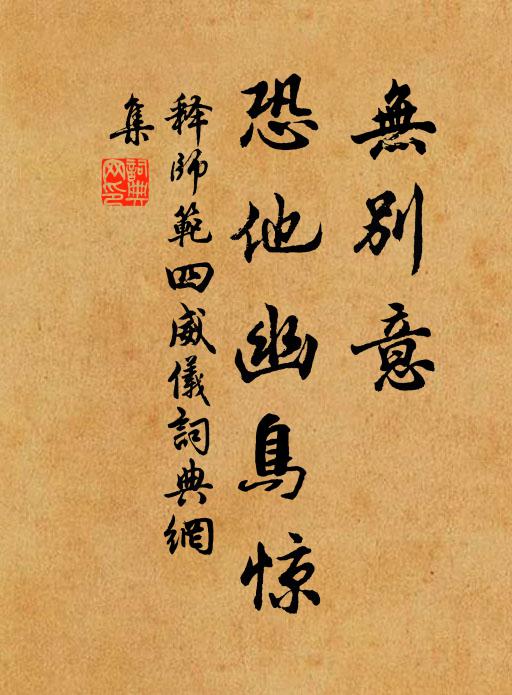 無别意
恐他幽鳥惊
释師範四威儀詞典網
集
詞典
网印